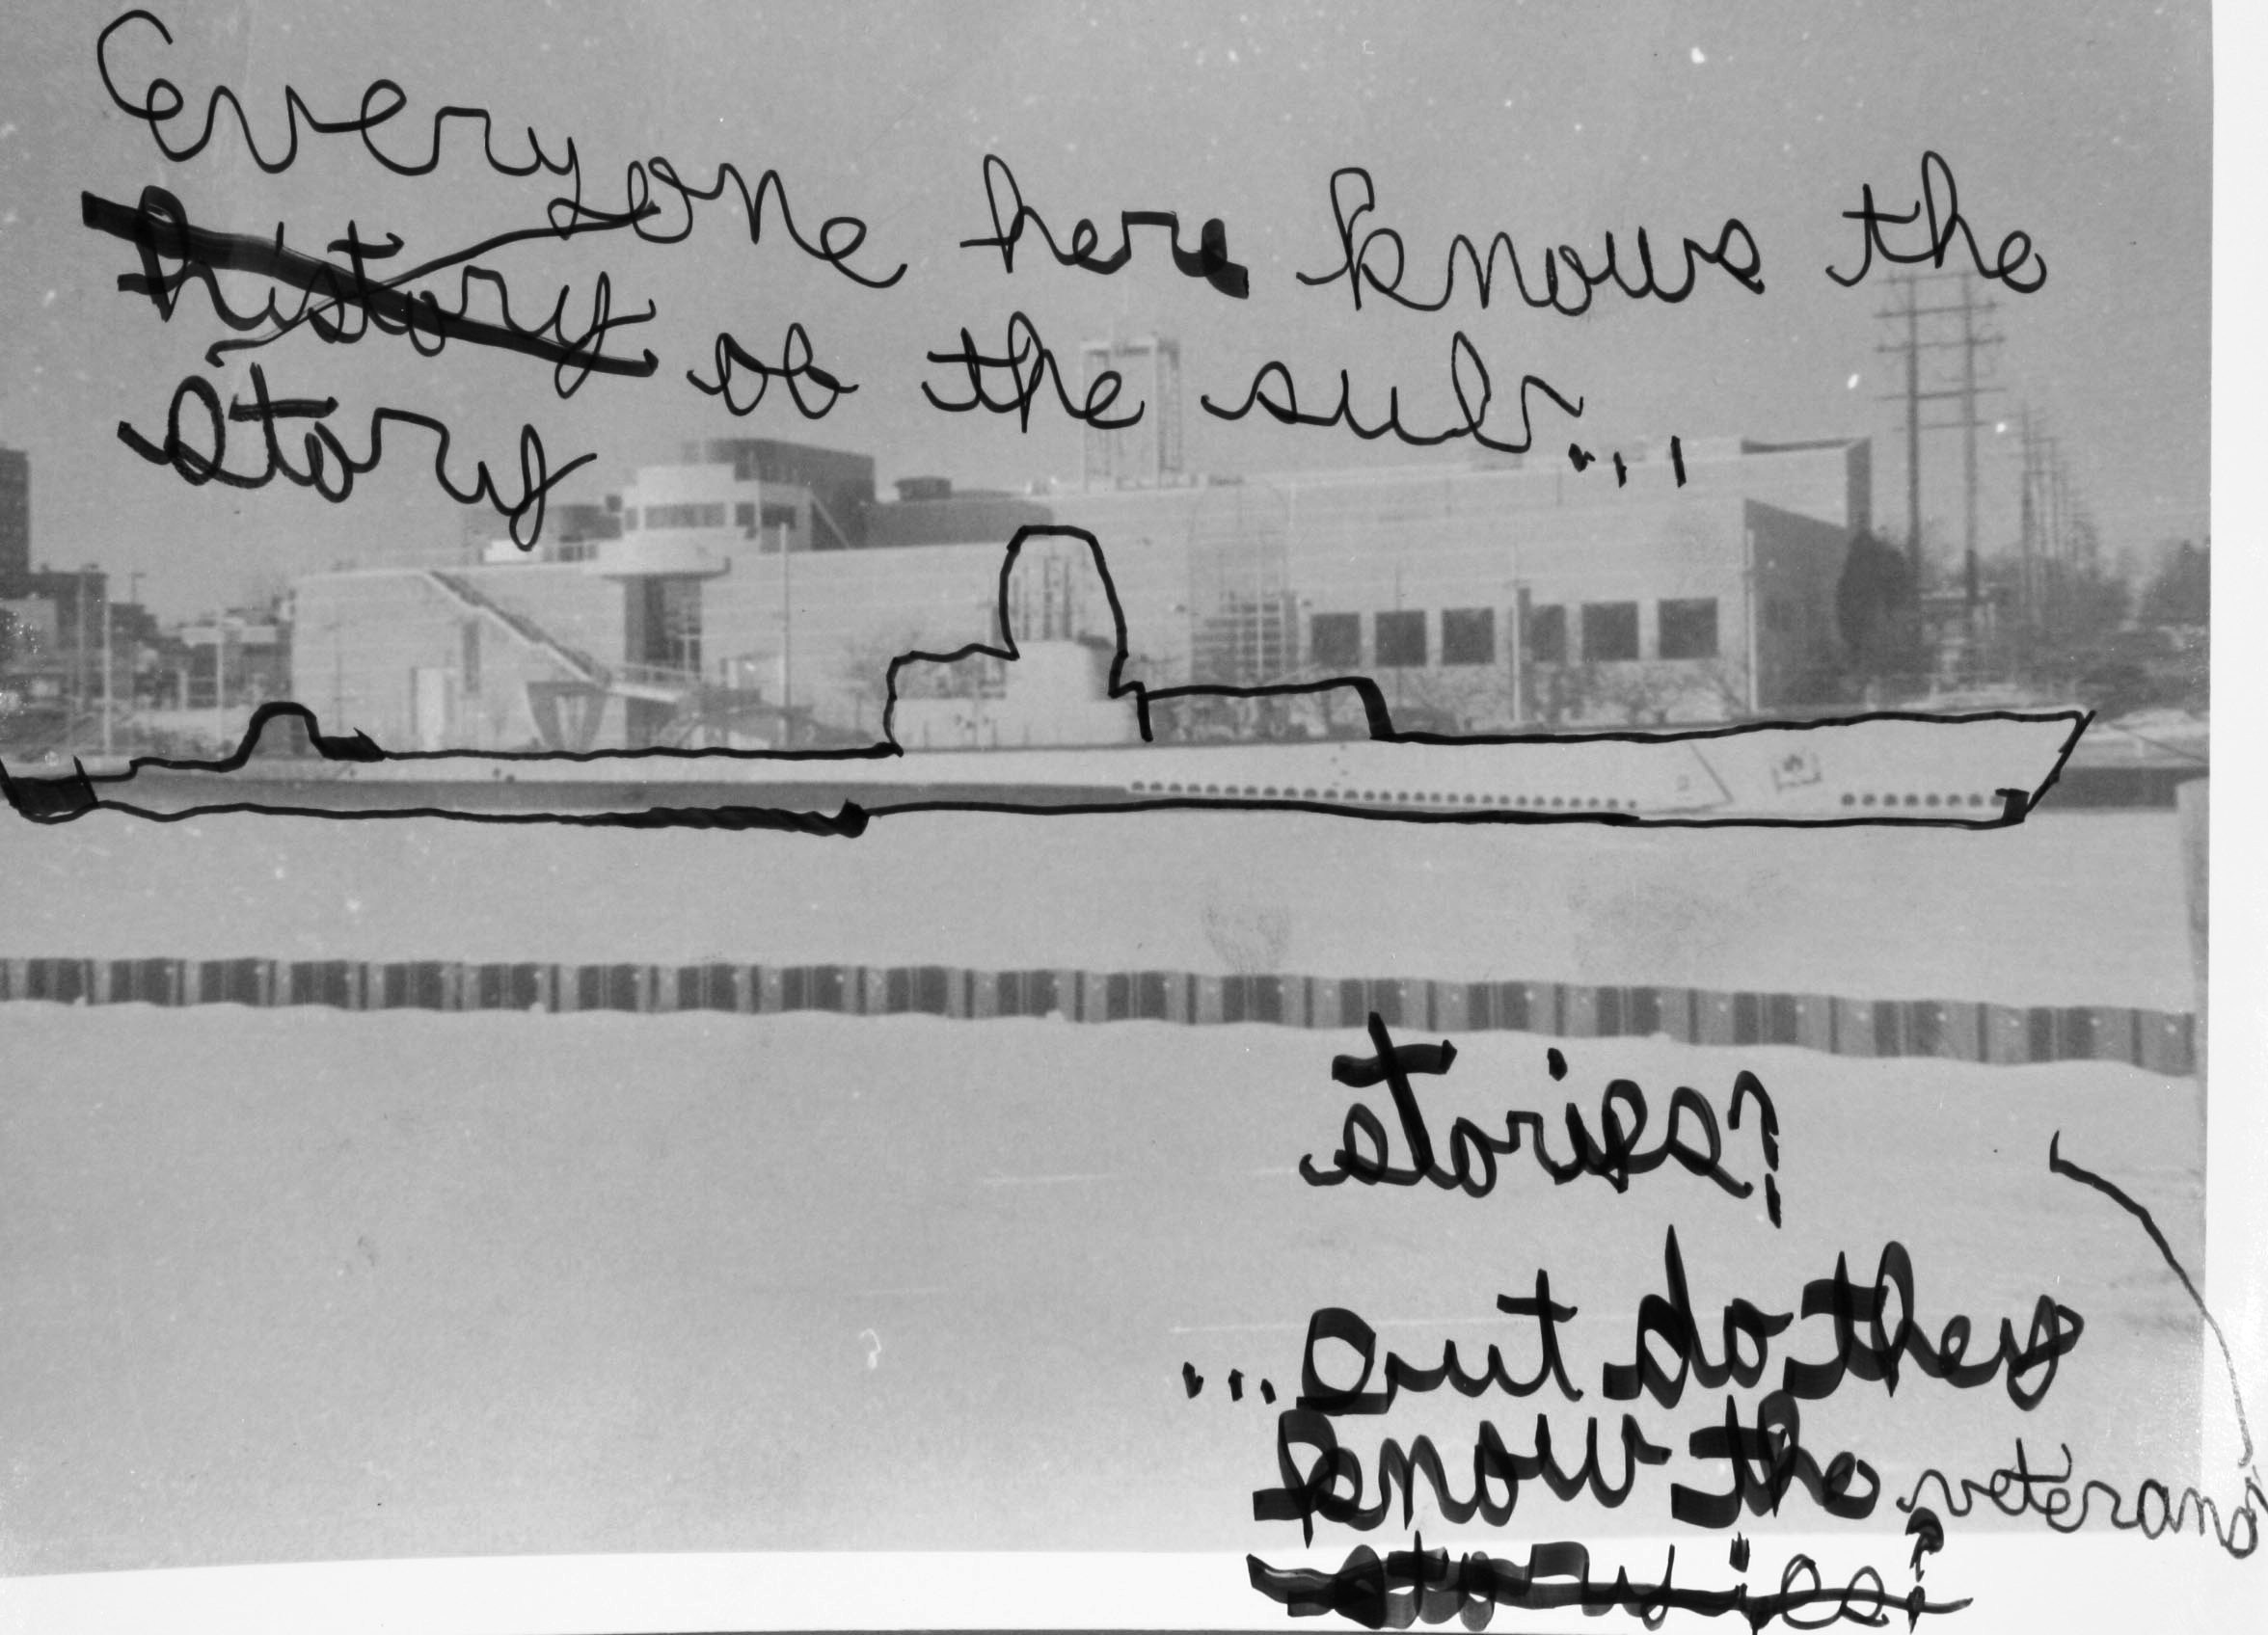 everyone here knows the
history of the sub...
story
stories?
...but do they
know the veterans
stories?